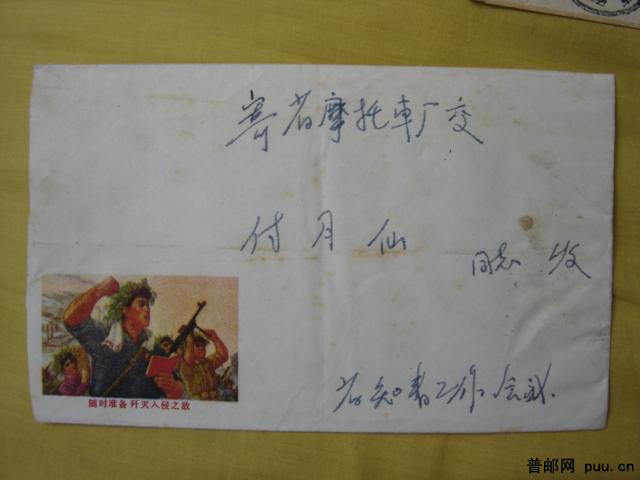 寄省摩托車厂交
付月仙 同志 收
省知青工作会议.
随时准备 歼灭入侵之敌
普邮网 puu.cn